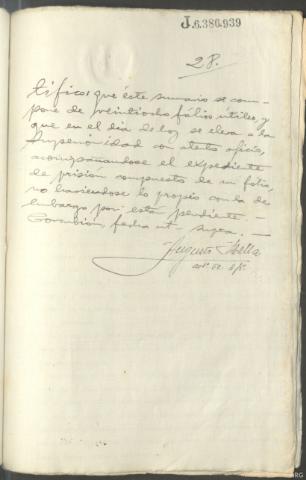 J.6.386.939
28.
tifico; que éste sumario se com-
pone de veintiocho fólios útiles, y
que en el dia de hoy se eleva a la
Superioridad con atento oficio,
acompañandose el expediente
de prisión compuesto de un folio,
no haciendose lo propio con la de
embargo por está pendiente.-
Corcubión, fecha ut supra.-
Augusto
RG